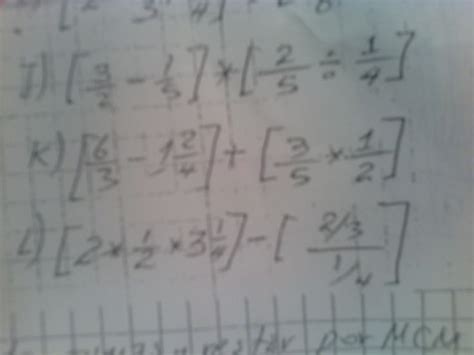 J) [3/2 - 1/3] * [2/5 ÷ 1/4]
K) [6/3 - 1 2/4] + [3/5 * 1/2]
L) [2 * 1/2 * 3 1/4] - [2/3 / 1/4]
por MCM